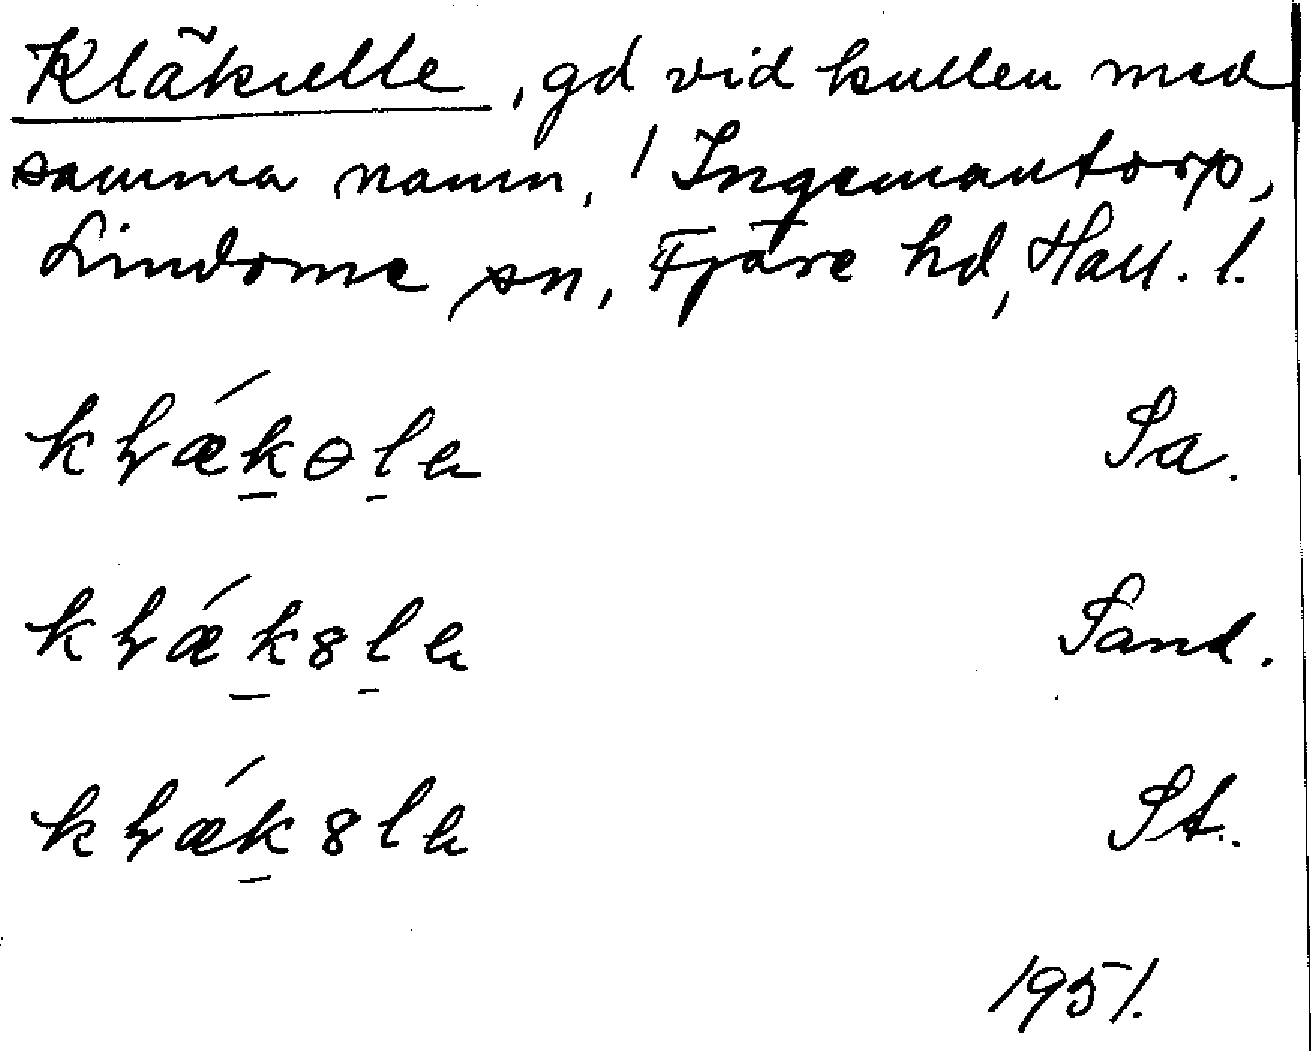 Kläkulle, gd vid kullen med
samma namn, / Ingemantorp,
Lindome sn, Fjäre hd, Hall. l.
kɫǽkɵla Sa.
kɫǽk8la Sand.
kɫǽk8la St.
1951.